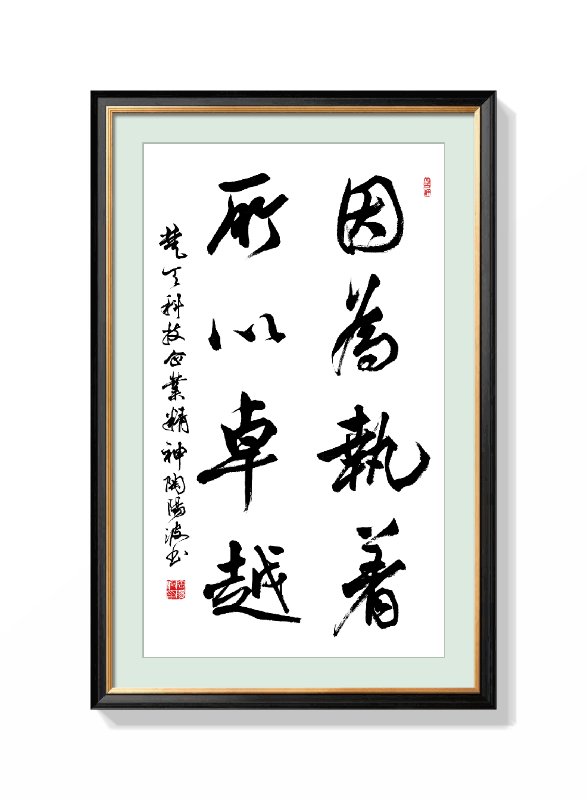 因為執着
所以卓越
楚天科技企業精神陶陽波書